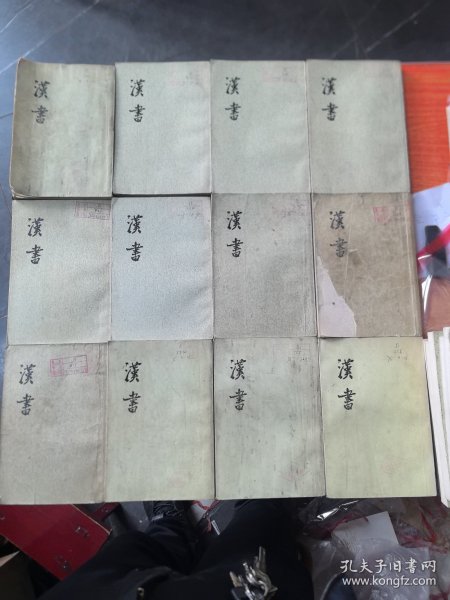 漢書
漢書
漢書
漢書
漢書
漢書
漢書
漢書
漢書
漢書
漢書
漢書
孔夫子旧书网
www.kongfz.com